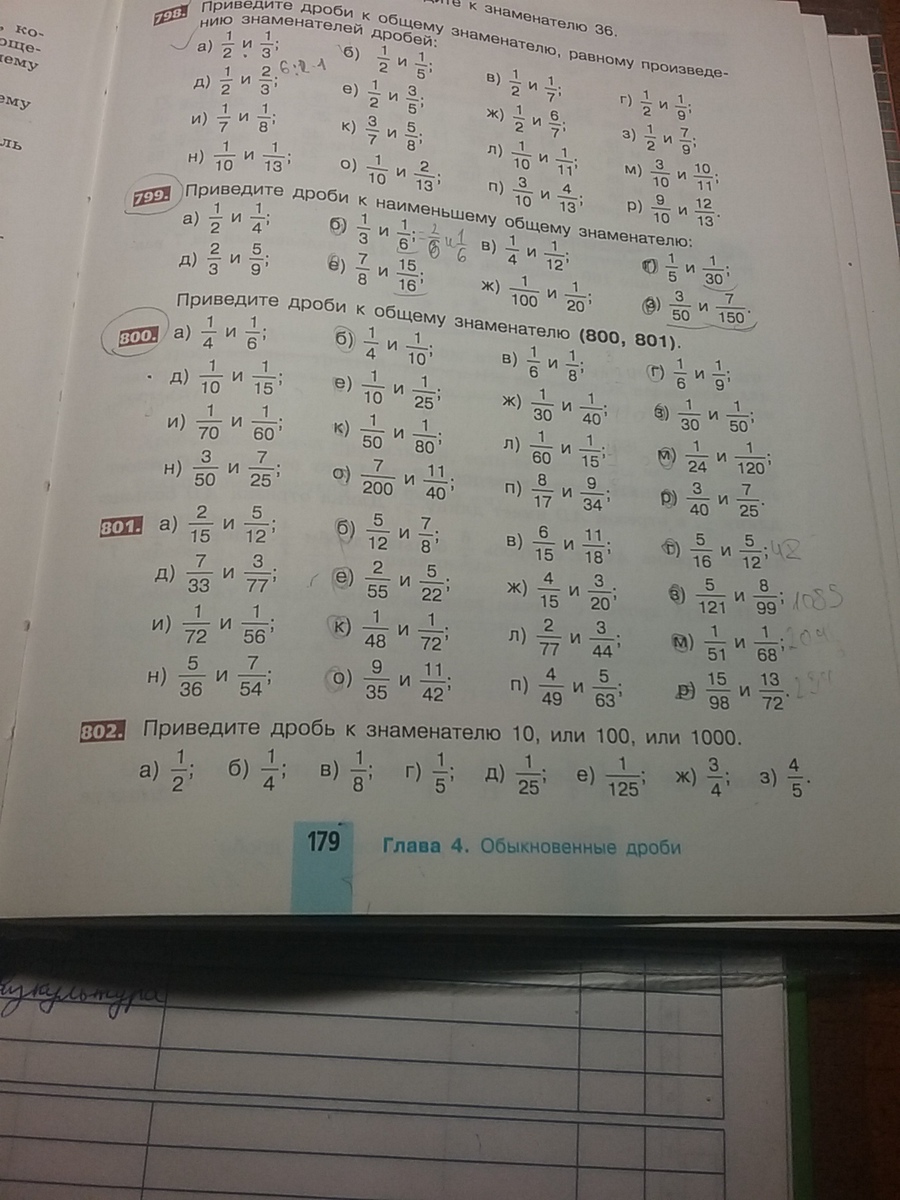 к знаменателю 36.
798. Приведите дроби к общему знаменателю, равному произведе-
нию знаменателей дробей:
а) 1/2 и 1/3; б) 1/2 и 1/5; в) 1/2 и 1/7; г) 1/2 и 1/9;
д) 1/2 и 2/3; е) 1/2 и 3/5; ж) 1/2 и 6/7; з) 1/2 и 7/9;
и) 1/7 и 1/8; к) 3/7 и 5/8; л) 1/10 и 1/11; м) 3/10 и 10/11;
н) 1/10 и 1/13; о) 1/10 и 2/13; п) 3/10 и 4/13; р) 9/10 и 12/13.
799. Приведите дроби к наименьшему общему знаменателю:
а) 1/2 и 1/4; б) 1/3 и 1/6; = 2/6 и 1/6 в) 1/4 и 1/12; г) 1/5 и 1/30;
д) 2/3 и 5/9; е) 7/8 и 15/16; ж) 1/100 и 1/20; з) 3/50 и 7/150.
Приведите дроби к общему знаменателю (800, 801).
800. а) 1/4 и 1/6; б) 1/4 и 1/10; в) 1/6 и 1/8; г) 1/6 и 1/9;
д) 1/10 и 1/15; е) 1/10 и 1/25; ж) 1/30 и 1/40; з) 1/30 и 1/50;
и) 1/70 и 1/60; к) 1/50 и 1/80; л) 1/60 и 1/15; м) 1/24 и 1/120;
н) 3/50 и 7/25; о) 7/200 и 11/40; п) 8/17 и 9/34; р) 3/40 и 7/25.
801. а) 2/15 и 5/12; б) 5/12 и 7/8; в) 6/15 и 11/18; г) 5/16 и 5/12; 42
д) 7/33 и 3/77; е) 2/55 и 5/22; ж) 4/15 и 3/20; з) 5/121 и 8/99;
и) 1/72 и 1/56; к) 1/48 и 1/72; л) 2/77 и 3/44; м) 1/51 и 1/68;
н) 5/36 и 7/54; о) 9/35 и 11/42; п) 4/49 и 5/63; р) 15/98 и 13/72.
802. Приведите дробь к знаменателю 10, или 100, или 1000.
а) 1/2; б) 1/4; в) 1/8; г) 1/5; д) 1/25; е) 1/125; ж) 3/4; з) 4/5.
179 Глава 4. Обыкновенные дроби